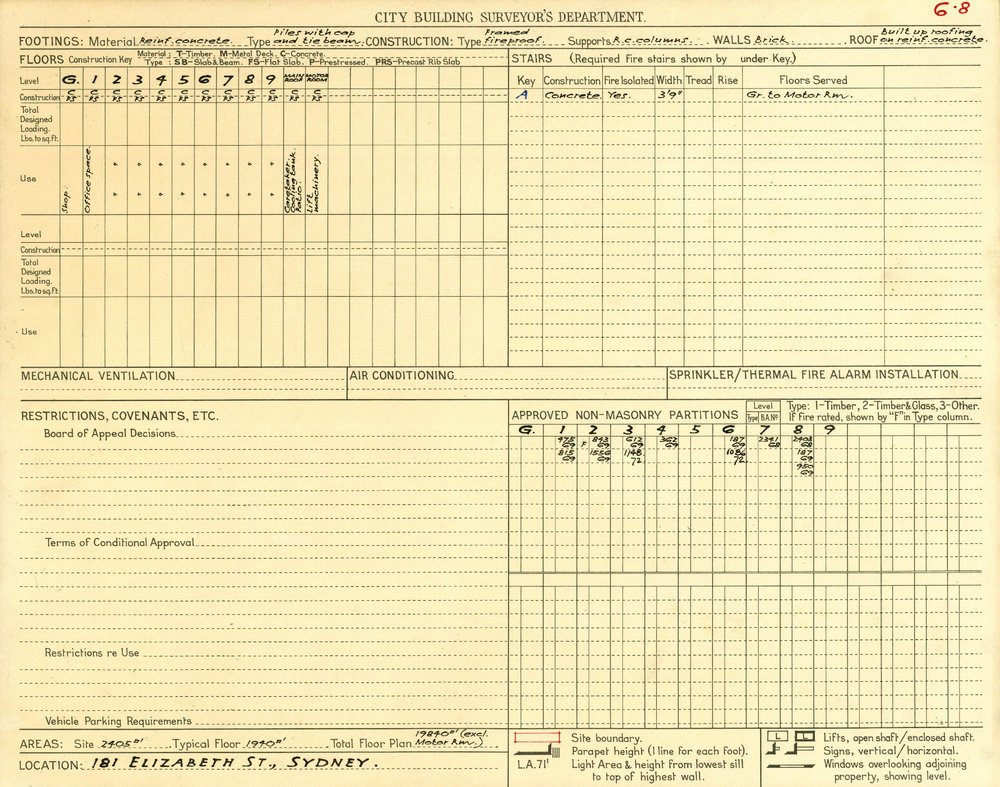 CITY BUILDING SURVEYOR'S DEPARTMENT.
6·8
FOOTINGS: Material Reinf. concrete. Type Piles with cap and tie beam. CONSTRUCTION: Type Framed fireproof. Supports R.c. columns. WALLS Brick. ROOF Built up roofing on reinf. concrete.
FLOORS Construction Key Material: T-Timber. M-Metal Deck. C-Concrete.
Type: SB-Slab & Beam. FS-Flat Slab. P-Prestressed. PRS-Precast Rib Slab
STAIRS (Required fire stairs shown by under Key.)
Level G. 1 2 3 4 5 6 7 8 9 MAIN ROOF MOTOR ROOM
Key Construction Fire Isolated Width Tread Rise Floors Served
Construction C FS C FS C FS C FS C FS C FS C FS C FS C FS C FS C FS C FS
A Concrete. Yes. 3'9" Gr. to Motor Rm.
Total Designed Loading. Lbs. to sq. ft.
Use Shop. Office space. " " " " " " " " " " " " " " " " Caretaker. Cooling tank. Patio. Lift machinery.
Level
Construction
Total Designed Loading. Lbs. to sq. ft.
Use
MECHANICAL VENTILATION AIR CONDITIONING SPRINKLER/THERMAL FIRE ALARM INSTALLATION
RESTRICTIONS, COVENANTS, ETC.
Board of Appeal Decisions
Terms of Conditional Approval
Restrictions re Use
Vehicle Parking Requirements
APPROVED NON-MASONRY PARTITIONS Level Type B.A.Nº Type: 1-Timber, 2-Timber & Glass, 3-Other.
If fire rated, shown by "F" in Type column.
G. 1 2 3 4 5 6 7 8 9
475 F 843 612 362 187 2341 2403
69 69 69 69 69 68 68
815 1556 1148 1086 187
69 69 72 72 69
950
69
AREAS: Site 2405 □' Typical Floor 1940 □' Total Floor Plan 19840 □' (excl. Motor Rm.)
LOCATION: 181 ELIZABETH ST., SYDNEY.
Site boundary.
Parapet height (1 line for each foot).
L.A. 71' Light Area & height from lowest sill
to top of highest wall.
L L Lifts, open shaft/enclosed shaft.
Signs, vertical/horizontal.
Windows overlooking adjoining
property, showing level.